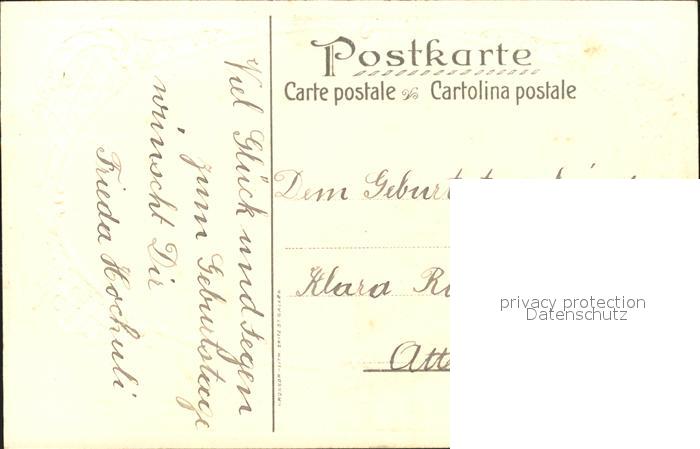 Postkarte
Carte postale Cartolina postale
Viel Glück und Segen
zum Geburtstage
wünscht Dir
Frieda Hochuli
Dem
Klara
Att
privacy protection
Datenschutz